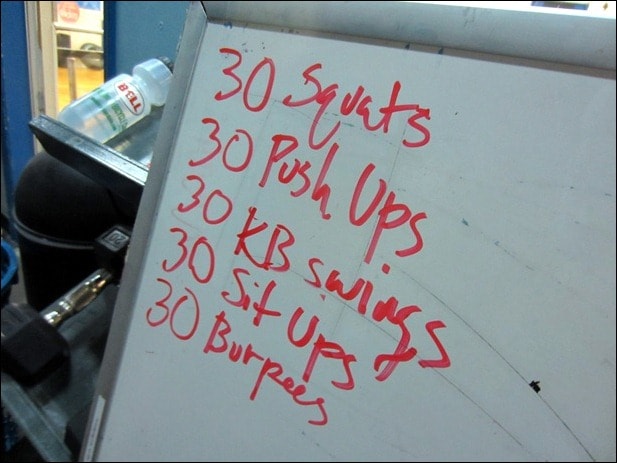 30 Squats
30 Push Ups
30 KB swings
30 Sit Ups
30 Burpees
BELL